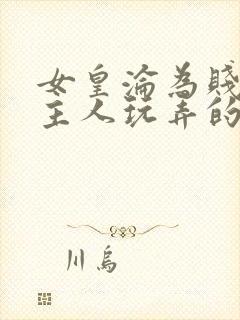 女皇淪為賤
主人玩弄的
川烏